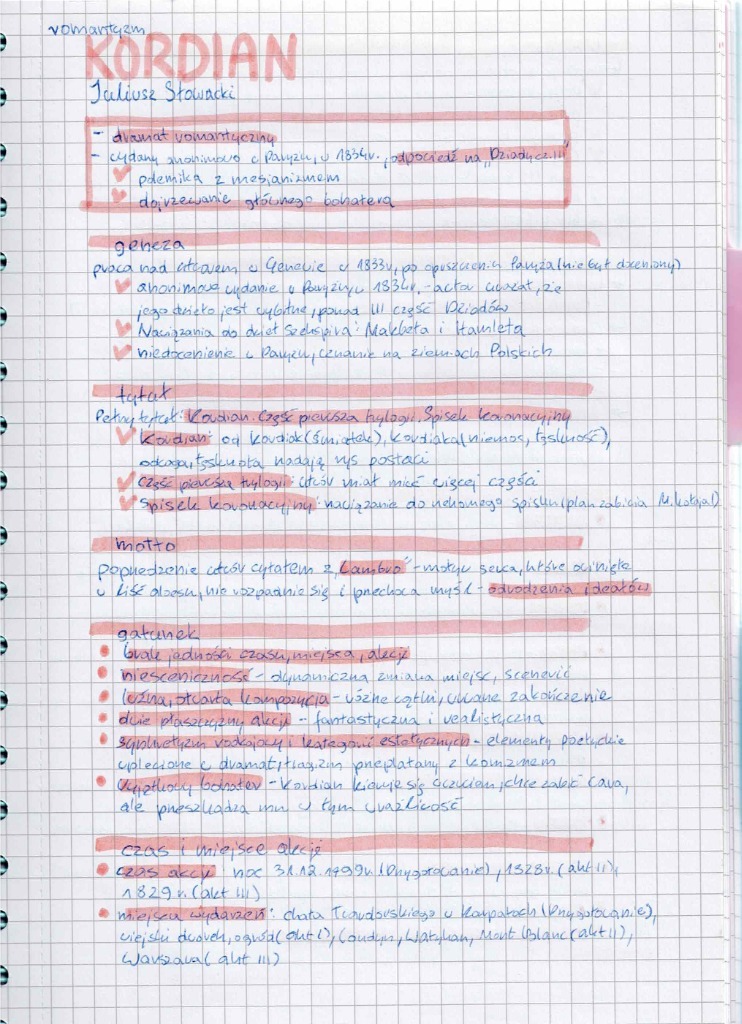 romantyzm
KORDIAN
Juliusz Słowacki
- dramat romantyczny
- wydany anonimowo w Paryżu, w 1834r., odpowiedź na "Dziady cz. III"
polemika z mesjanizmem
dojrzewanie głównego bohatera
geneza
praca nad utworem w Genewie w 1833r, po opuszczeniu Paryża (nie był doceniony)
anonimowe wydanie w Paryżu, 1834r. - autor uważał, że
jego dzieło jest wybitne, ponad III część Dziadów
Nawiązania do dzieł Szekspira: Makbeta i Hamleta
niedocenienie w Paryżu, uznanie na ziemiach Polskich
tytuł
Pełny tytuł: Kordian. Część pierwsza trylogii. Spisek koronacyjny
Kordian: od kordiak (śmiałek), kordiaka (niemoc, tęskność),
odwaga, tęsknota nadają rys postaci
Część pierwsza trylogii: utwór miał mieć więcej części
Spisek koronacyjny: nawiązanie do spisku (plan zabicia Mikołaja I)
motto
poprzedzenie utworu cytatem z "Lambro" - motyw serca, które owinięte
w liść aloesu, nie rozpadnie się i przechowa myśl - odrodzenia ideałów
gatunek
brak jedności czasu, miejsca, akcji
niesceniczność - dynamiczna zmiana miejsc, scenerii
luźna, otwarta kompozycja - różne wątki, urwane zakończenie
dwie płaszczyzny akcji - fantastyczna i realistyczna
synkretyzm rodzajowy i kategorii estetycznych - elementy poetyckie
wplecione w dramat, tragizm przeplatany z komizmem
wyjątkowy bohater - Kordian kieruje się uczuciem, chce zabić cara,
ale przeszkadza mu w tym wrażliwość
czas i miejsce akcji
czas akcji: noc 31.12.1799r. (Przygotowanie), 1828r. (akt II),
1829r. (akt III)
miejsca wydarzeń: chata Twardowskiego w Karpatach (Przygotowanie),
wiejski dworek, ogród (akt I), Londyn, Watykan, Mont Blanc (akt II),
Warszawa (akt III)